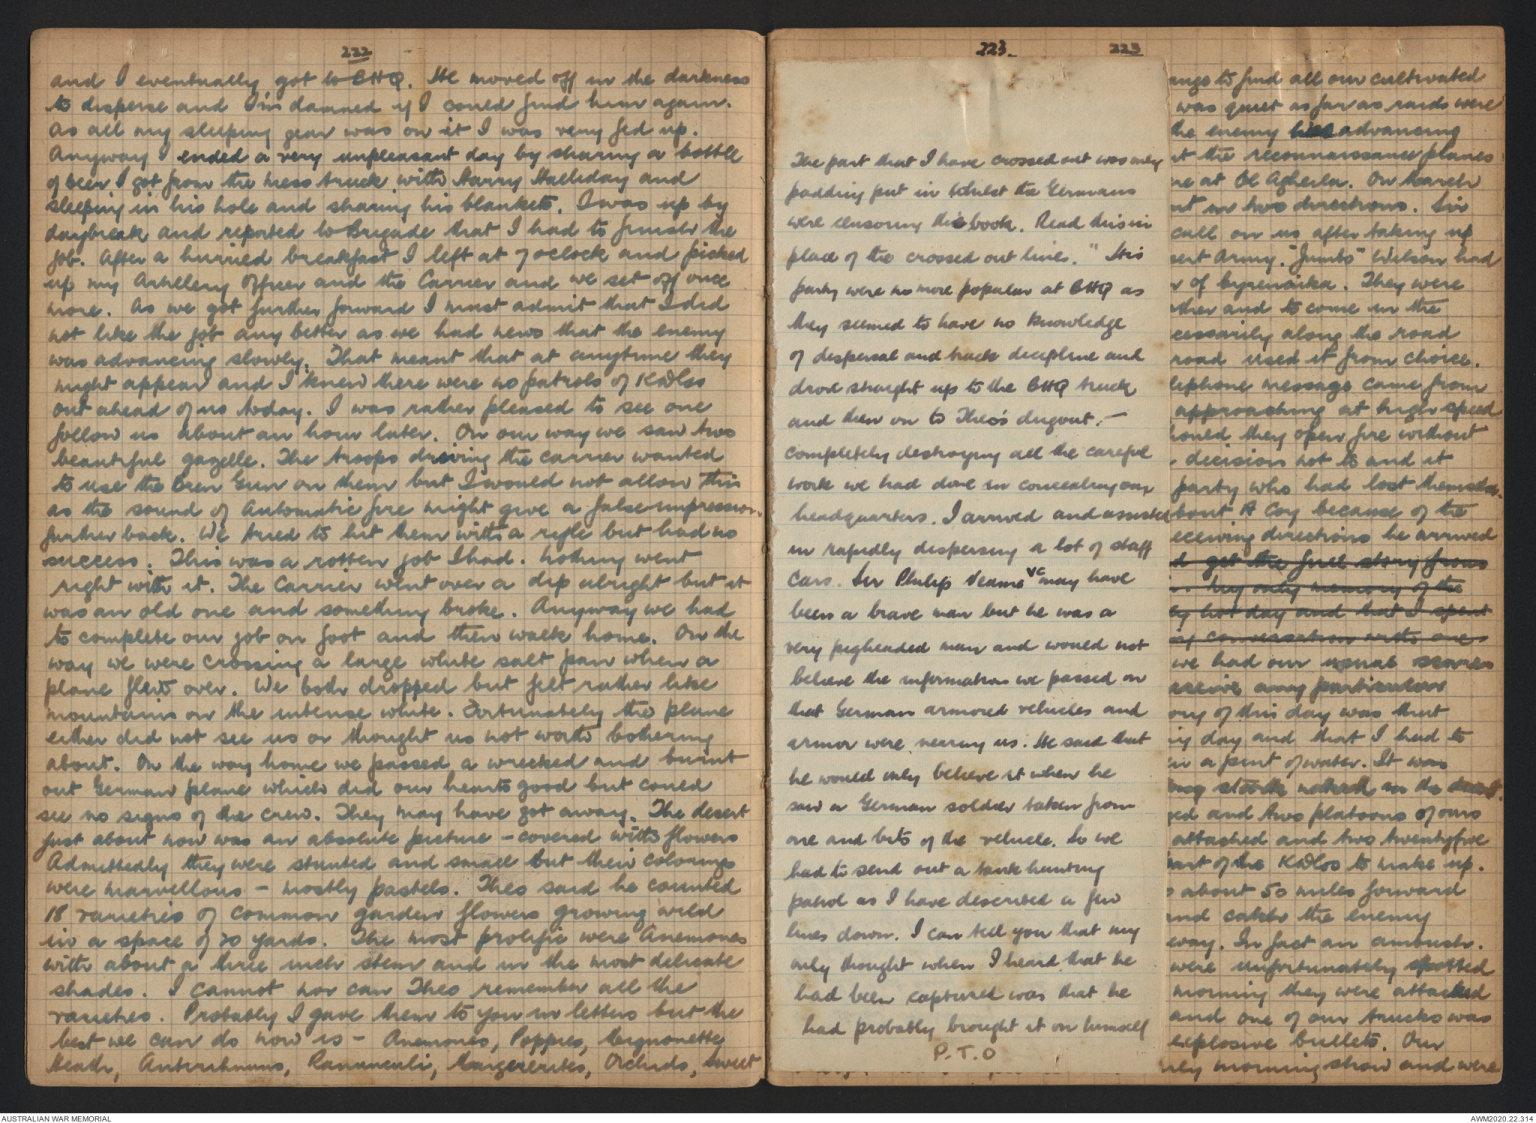 222
and I eventually got to BHQ. He moved off in the darkness
to disperse and I'm damned if I could find him again.
As all my sleeping gear was on it I was very fed up.
Anyway I ended a very unpleasant day by sharing a bottle
of beer I got from the mess truck with Harry Halliday and
sleeping in his hole and sharing his blankets. I was up by
daybreak and reported to Brigade that I had to finish the
job. After a hurried breakfast I left at 7 oclock and picked
up my Artillery Officer and the Carrier and we set off once
more. As we got further forward I must admit that I did
not like the job any better as we had news that the enemy
was advancing slowly. That meant that at anytime they
might appear and I knew there were no patrols of KDGs
out ahead of us today. I was rather pleased to see one
follow us about an hour later. On our way we saw two
beautiful gazelle. The troops driving the carrier wanted
to use the Bren Gun on them but I would not allow this
as the sound of Automatic fire might give a false impression
further back. We tried to hit them with a rifle but had no
success. This was a rotten job I had. Nothing went
right with it. The Carrier went over a dip alright but it
was an old one and something broke. Anyway we had
to complete our job on foot and then walk home. On the
way we were crossing a large white salt pan when a
plane flew over. We both dropped but felt rather like
mountains on the intense white. Fortunately the plane
either did not see us or thought us not worth bothering
about. On the way home we passed a wrecked and burnt
out German plane which did our hearts good but could
see no signs of the crew. They may have got away. The desert
just about now was an absolute picture - covered with flowers
Admittedly they were stunted and small but their colourings
were marvellous - mostly pastels. Theo said he counted
18 varieties of common garden flowers growing wild
in a space of 20 yards. The most prolific were Anemones
with about a three inch stem and in the most delicate
shades. I cannot nor can Theo remember all the
varieties. Probably I gave them to you in letters but the
best we can do now is - Anemones, Poppies, Mignonette
Heath, Antirrhinums, Rananculi, Margeurites, Orchids, Sweet
223.
The part that I have crossed out was only
padding put in whilst the Germans
were censoring this book. Read this in
place of the crossed out lines. " His
party were no more popular at BHQ as
they seemed to have no knowledge
of dispersal and track decipline and
drove straight up to the BHQ truck
and then on to Theo's dugout. -
completely destroying all the careful
work we had done in concealing our
headquarters. I arrived and assisted
in rapidly dispersing a lot of staff
cars. Sir Philip Neame VC may have
been a brave man but he was a
very pigheaded man and would not
believe the information we passed on
that German armored vehicles and
armor were nearing us. He said that
he would only believe it when he
saw a German soldier taken from
one and bits of the vehicle. So we
had to send out a tank hunting
patrol as I have described a few
lines down. I can tell you that my
only thought when I heard that he
had been captured was that he
had probably brought it on himself
P.T.O
223
to find all our cultivated
was quiet as far as raids were
the enemy advancing
the reconnaissance planes
at El Agheila. On March
in two directions. Sir
call on us after taking up
Army. "Jumbo" Wilson had
of Cyrenaica. They were
and to come in the
along the road
road used it from choice.
message came from
approaching at high speed
they open fire without
decision not to and it
party who had lost themselves
about A Coy because of the
receiving directions he arrived
get the full story from
my only memory of the
hot day and that I spent
conversation with one
we had our usual scares
any particular
of this day was that
day and that I had to
in a pint of water. It was
stark naked in the
and two platoons of ours
attached and two twentyfive
part of the KDGs to make up.
about 50 miles forward
and catch the enemy
way. In fact an ambush.
were unfortunately spotted
morning they were attacked
and one of our trucks was
explosive bullets. Our
morning show and were
AUSTRALIAN WAR MEMORIAL
AWM2020.22.314